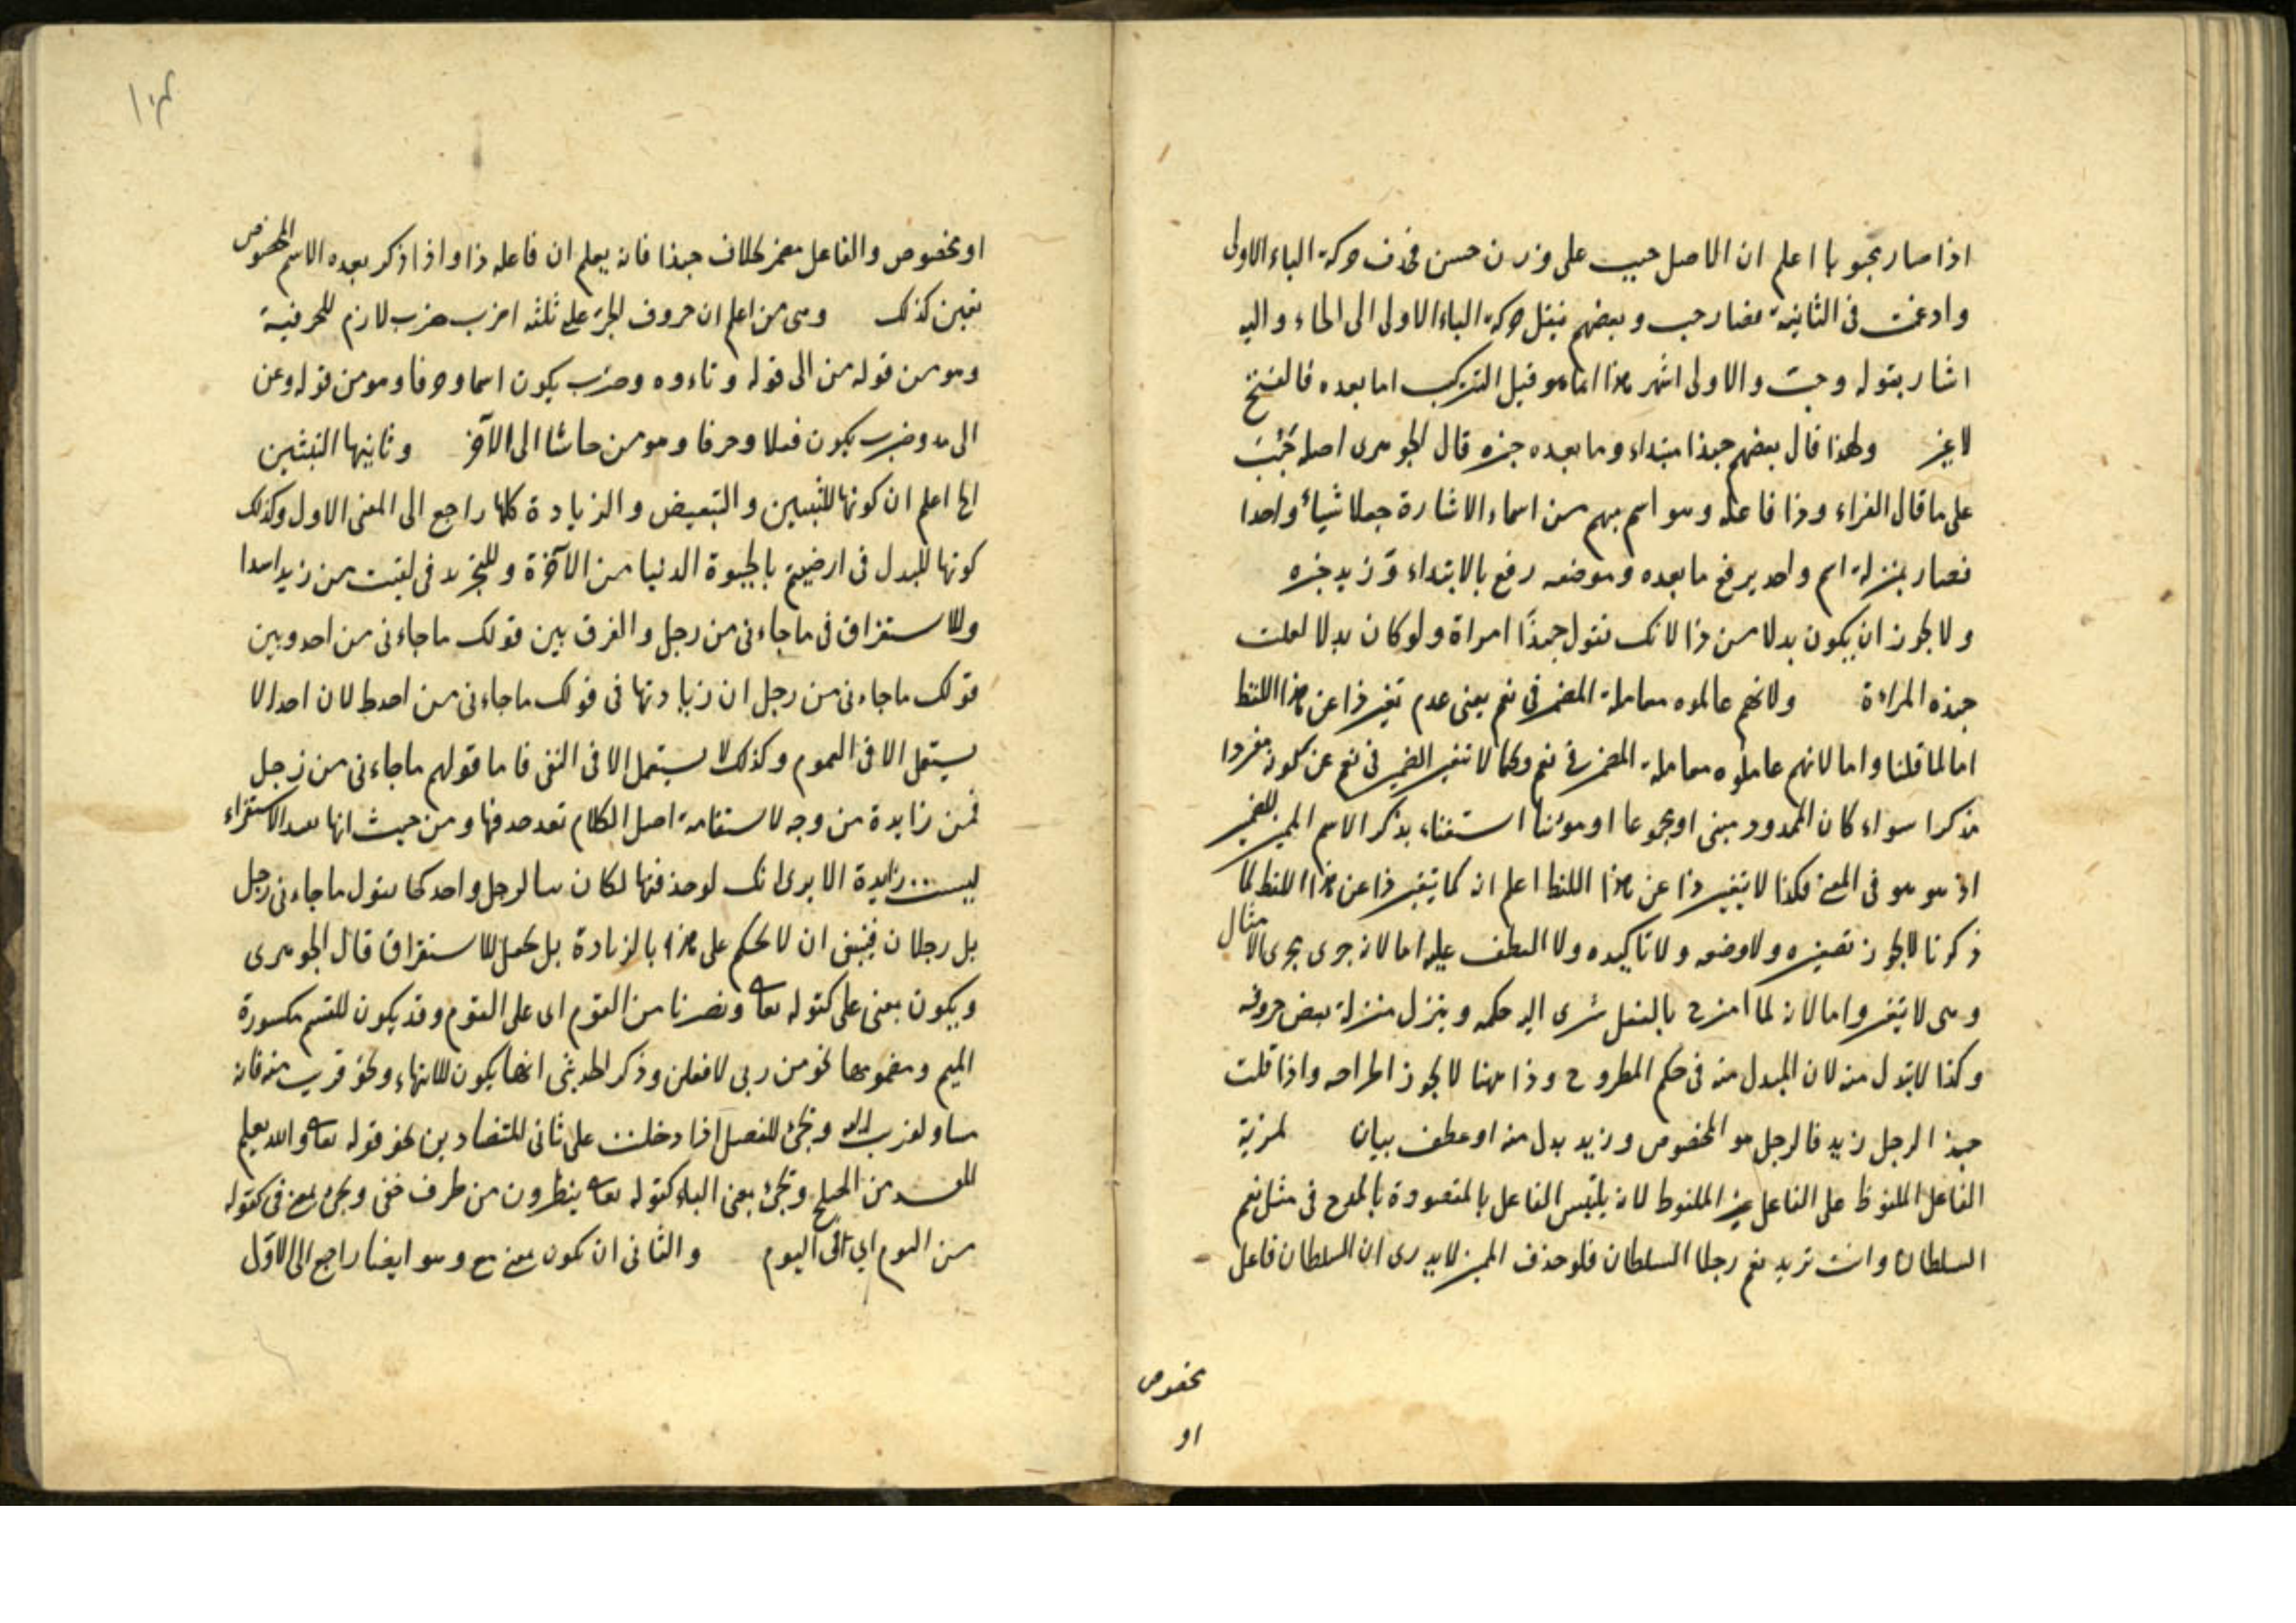 اذا صار محبوبا اعلم ان الاصل حبب على وزن حسن فحذف حركة الباء الاولى
وادغمت فى الثانية فصار حب وبعضهم ينقل حركة الباء الاولى الى الحاء واليه
اشار بقوله وحب والاولى اشهر هذا انما هو قبل التركيب اما بعده فالفتح
لا غير ولهذا قال بعضهم حبذا مبتداء وما بعده خبره قال الجوهرى اصله حَبُبَ
على ما قال الفراء وذا فاعله وهو اسم مبهم من اسماء الاشارة جعلا شيأ واحدا
فصار بمنزلة اسم واحد يرفع ما بعده وموضعه رفع بالابتداء وزيد خبره
ولا يجوز ان يكون بدلا من ذا لانك تقول حبذا امراة ولو كان بدلا لقلت
حبذه المراءة ولانهم عاملوه معاملة المضمر فى نعم يعنى عدم تغير ذا عن هذا اللفظ
اما لما قلنا واما لانهم عاملوه معاملة المضمر فى نعم وكما لا تغير الضمير فى نعم عن كونه مفردا
مذكرا سواء كان الممدوح مثنى او مجموعا او مونثا استغناء بذكر الاسم المميز للضمير
اذ هو هو فى المعنى فكذا لا يتغير ذا عن هذا اللفظ اعلم انه كما يتغير ذا عن هذا اللفظ لما
ذكرنا لا يجوز تصغيره ولا وضعه ولا تاكيده ولا العطف عليه اما لانه جرى مجرى الامثال
وهى لا يتغير واما لانه لما امتزج بالفعل سرى اليه حكمه وينزل منزلة بعض حروفه
وكذا لا يبدل منه لان المبدل منه فى حكم المطروح وذا ههنا لا يجوز اطراحه واذا قلت
حبذا الرجل زيد فالرجل هو المخصوص وزيد بدل منه او عطف بيان لمزية
الفاعل الملفوظ على الفاعل غير الملفوظ لانه يلتبس الفاعل بالمقصودة بالمدح فى مثل نعم
السلطان وانت تريد نعم رجلا السلطان فلو حذف المميز لا يدرى ان السلطان فاعل
مخصوص
او
او مخصوص والفاعل مضمر بخلاف حبذا فانه يعلم ان فاعله ذا واذا ذكر بعده الاسم المخصوص
تعين كذلك وهى من اعلم ان حروف الجر على ثلثة اضرب ضرب لازم للحرفية
وهو من قوله من الى قوله وتاءوه وضرب يكون اسما وحرفا وهو من قوله وعن
الى مذ وضرب يكون فعلا وحرفا وهو من حاشا الى الآخر وثانيها التبيين
الخ اعلم ان كونها للتبيين والتبعيض والزيادة كلها راجع الى المعنى الاول وكذلك
كونها للبدل فى ارضيتم بالحيوة الدنيا من الآخرة وللتجريد فى لقيت من زيد اسدا
وللاستغراق فى ما جاءنى من رجل والفرق بين قولك ما جاءنى من احد وبين
قولك ما جاءنى من رجل ان زيادتها فى قولك ما جاءنى من احد لان احدا لا
يستعمل الا فى العموم وكذلك لا يستعمل الا فى النفى فاما قولهم ما جاءنى من رجل
فمن زايدة من وجه لاستقامة اصل الكلام بعد حذفها ومن حيث انها تفيد الاستغراق
ليست زايدة الا يرى انك لو حذفتها لكان نفيا لرجل واحد كما تقول ما جاءنى رجل
بل رجلان فينبغى ان لا يحكم على هذا بالزيادة بل يجعل للاستغراق قال الجوهرى
ويكون بمعنى على كقوله تعا ونصرنا من القوم اى على القوم وقد يكون للقسم مكسورة
الميم ومضمومها نحو من ربى لافعلن وذكر الحديثى انها يكون للانتهاء ونحو قربت منه فانه
مساو لقربت اليه وتجئ للفصل اذا دخلت على ثانى المتضادين نحو قوله تعا والله يعلم
المفسد من المصلح وتجئ بمعنى الباء كقوله تعا ينظرون من طرف خفى وتجئ بمعنى فى كقوله
من اليوم اى فى اليوم والثانى ان يكون بمعنى مع وهو ايضا راجع الى الاول